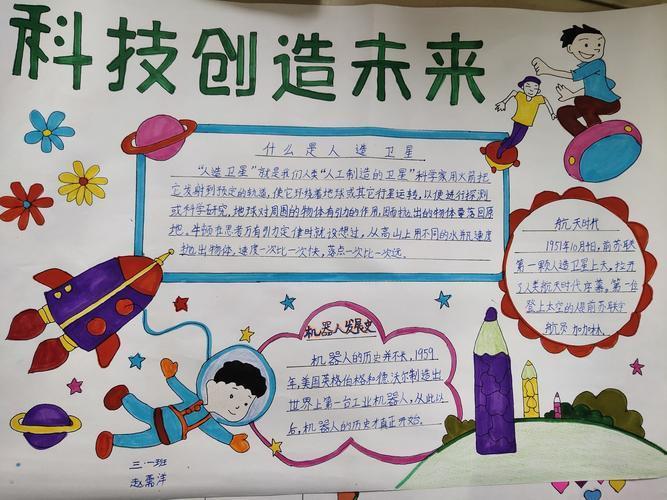 科技创造未来
什么是人造卫星
“人造卫星”就是我们人类“人工制造的卫星”科学家用火箭把
它发射到预定的轨道，使它环绕着地球或其它行星运转，以便进行探测
或科学研究，地球对周围的物体有引力的作用，因而抛出的物体要落回原
地，牛顿在思考万有引力定律时就设想过，从高山上用不同的水平速度
抛出物体，速度一次比一次快，落点一次比一次远。
航天时代
1951年10月4日，前苏联
第一颗人造卫星上天，拉开
了人类航天时代序幕，第一位
登上太空的人是前苏联宇
航员加加林。
机器人发展史
机器人的历史并不长，1959
年，美国英格伯格和德沃尔制造出
世界上第一台工业机器人，从此以
后，机器人的历史才真正开始。
三.一班
赵嘉洋